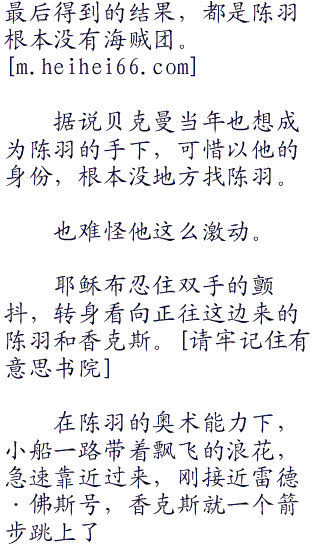 最后得到的结果，都是陈羽
根本没有海贼团。
[m.heihei66.com]
据说贝克曼当年也想成
为陈羽的手下，可惜以他的
身份，根本没地方找陈羽。
也难怪他这么激动。
耶稣布忍住双手的颤
抖，转身看向正往这边来的
陈羽和香克斯。[请牢记住有
意思书院]
在陈羽的奥术能力下，
小船一路带着飘飞的浪花，
急速靠近过来，刚接近雷德
·佛斯号，香克斯就一个箭
步跳上了